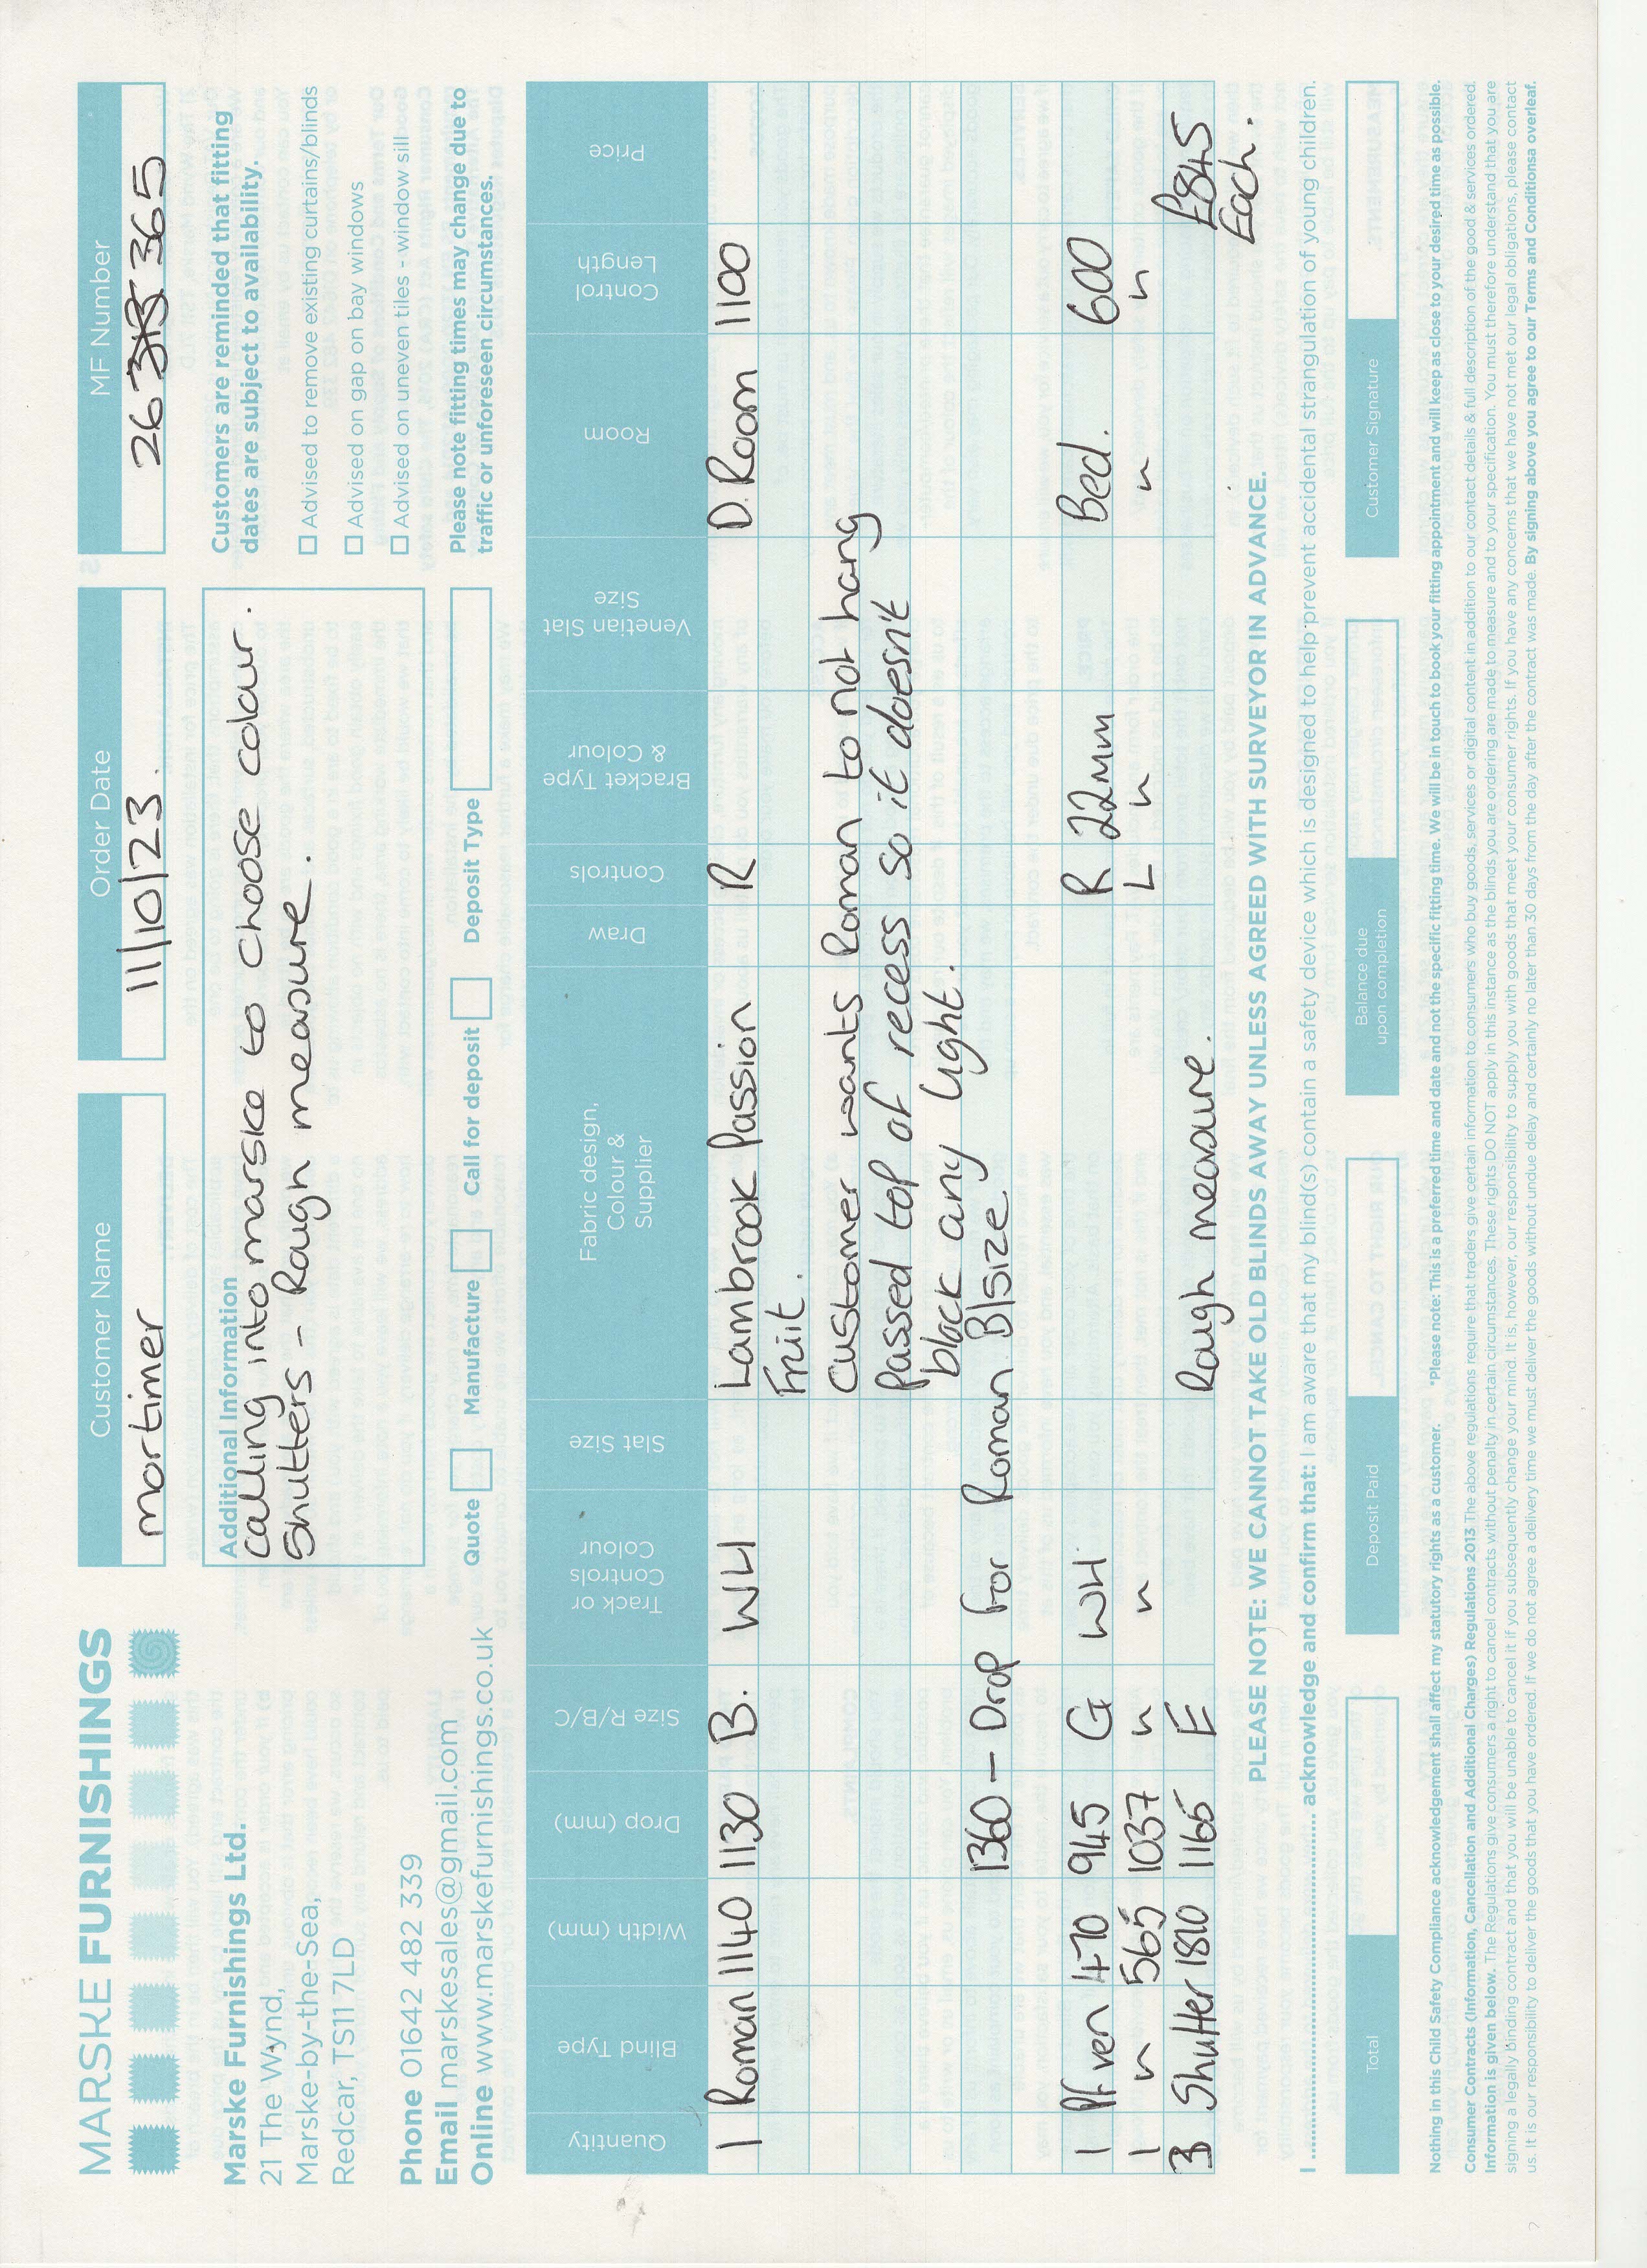 MARSKE FURNISHINGS
Marske Furnishings Ltd.
21 The Wynd,
Marske-by-the-Sea,
Redcar, TS11 7LD
Phone 01642 482 339
Email marskesales@gmail.com
Online www.marskefurnishings.co.uk
Customer Name
mortimer
Order Date
11/10/23.
MF Number
Additional Information
calling into marske to choose colour.
Shutters - Rough measure.
Customers are reminded that fitting
dates are subject to availability.
Advised to remove existing curtains/blinds
Advised on gap on bay windows
Advised on uneven tiles - window sill
Quote Manufacture Call for deposit Deposit Type
Please note fitting times may change due to
traffic or unforeseen circumstances.
Quantity Blind Type Width (mm) Drop (mm) Size R/B/C Track or Controls Colour Slat Size Fabric design, Colour & Supplier Draw Controls Bracket Type & Colour Venetian Slat Size Room Control Length Price
1 Roman 1140 1130 B. WH Lambrook Passion R D.Room 1100
Fruit.
Customer wants Roman to not hang
Passed top of recess so it doesn't
block any light.
1360 - Drop for Roman B/size
1 Pf ven 470 945 G WH R 22mm Bed. 600
1 " 565 1037 " " L " " "
3 Shutter 1810 1165 E Rough measure. £845
Each.
PLEASE NOTE: WE CANNOT TAKE OLD BLINDS AWAY UNLESS AGREED WITH SURVEYOR IN ADVANCE.
I .......... acknowledge and confirm that: I am aware that my blind(s) contain a safety device which is designed to help prevent accidental strangulation of young children.
Total
Deposit Paid
Balance due
upon completion
Customer Signature
Nothing in this Child Safety Compliance acknowledgement shall affect my statutory rights as a customer. *Please note: This is a preferred time and date and not the specific fitting time. We will be in touch to book your fitting appointment and will keep as close to your desired time as possible.
Consumer Contracts (Information, Cancellation and Additional Charges) Regulations 2013 The above regulations require that traders give certain information to consumers who buy goods, services or digital content in addition to our contact details & full description of the good & services ordered.
Information is given below. The Regulations give consumers a right to cancel contracts without penalty in certain circumstances. These rights DO NOT apply in this instance as the blinds you are ordering are made to measure and to your specification. You must therefore understand that you are
signing a legally binding contract and that you will be unable to cancel it if you subsequently change your mind. It is, however, our responsibility to supply you with goods that meet your consumer rights. If you have any concerns that we have not met our legal obligations, please contact
us. It is our responsibility to deliver the goods that you have ordered. If we do not agree a delivery time we must deliver the goods without undue delay and certainly no later than 30 days from the day after the contract was made. By signing above you agree to our Terms and Conditionsa overleaf.